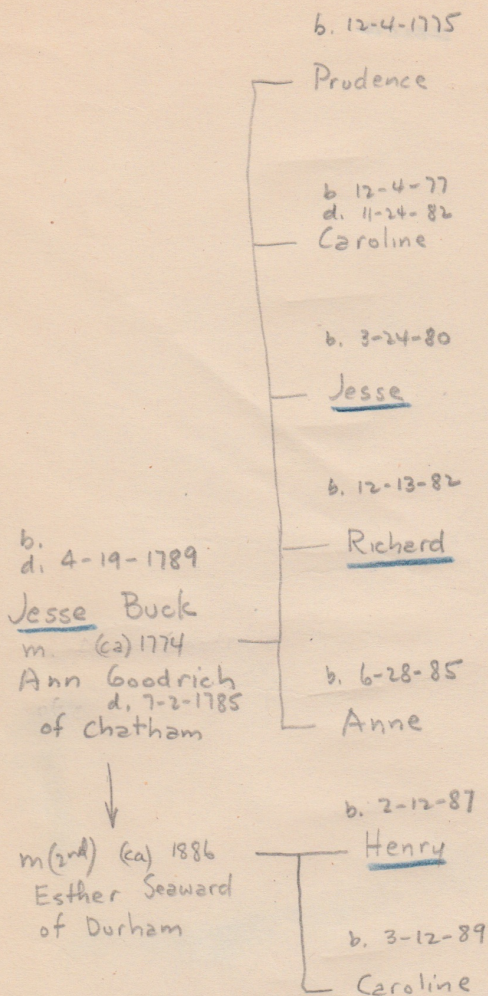 b. 12-4-1775
Prudence
b 12-4-77
d. 11-24-82
Caroline
b. 3-24-80
Jesse
b. 12-13-82
Richard
b.
d. 4-19-1789
Jesse Buck
m. (ca) 1774
Ann Goodrich
d. 7-2-1785
of Chatham
b. 6-28-85
Anne
m(2nd) (ca) 1886
Esther Seaward
of Durham
b. 2-12-87
Henry
b. 3-12-89
Caroline